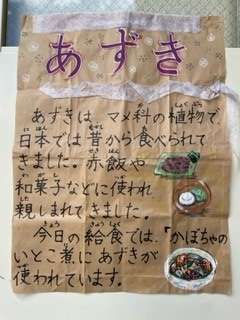 あずき
あずきは、マメ科の植物で
日本では昔から食べられて
きました。赤飯や
和菓子などに使われ
親しまれてきました。
今日の給食では、「かぼちゃの
いとこ煮にあずきが
使われています。